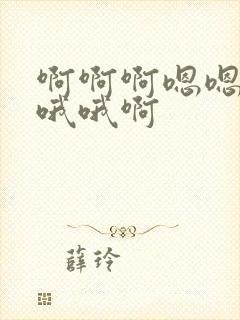 啊啊啊嗯嗯
哦哦啊
薛玲